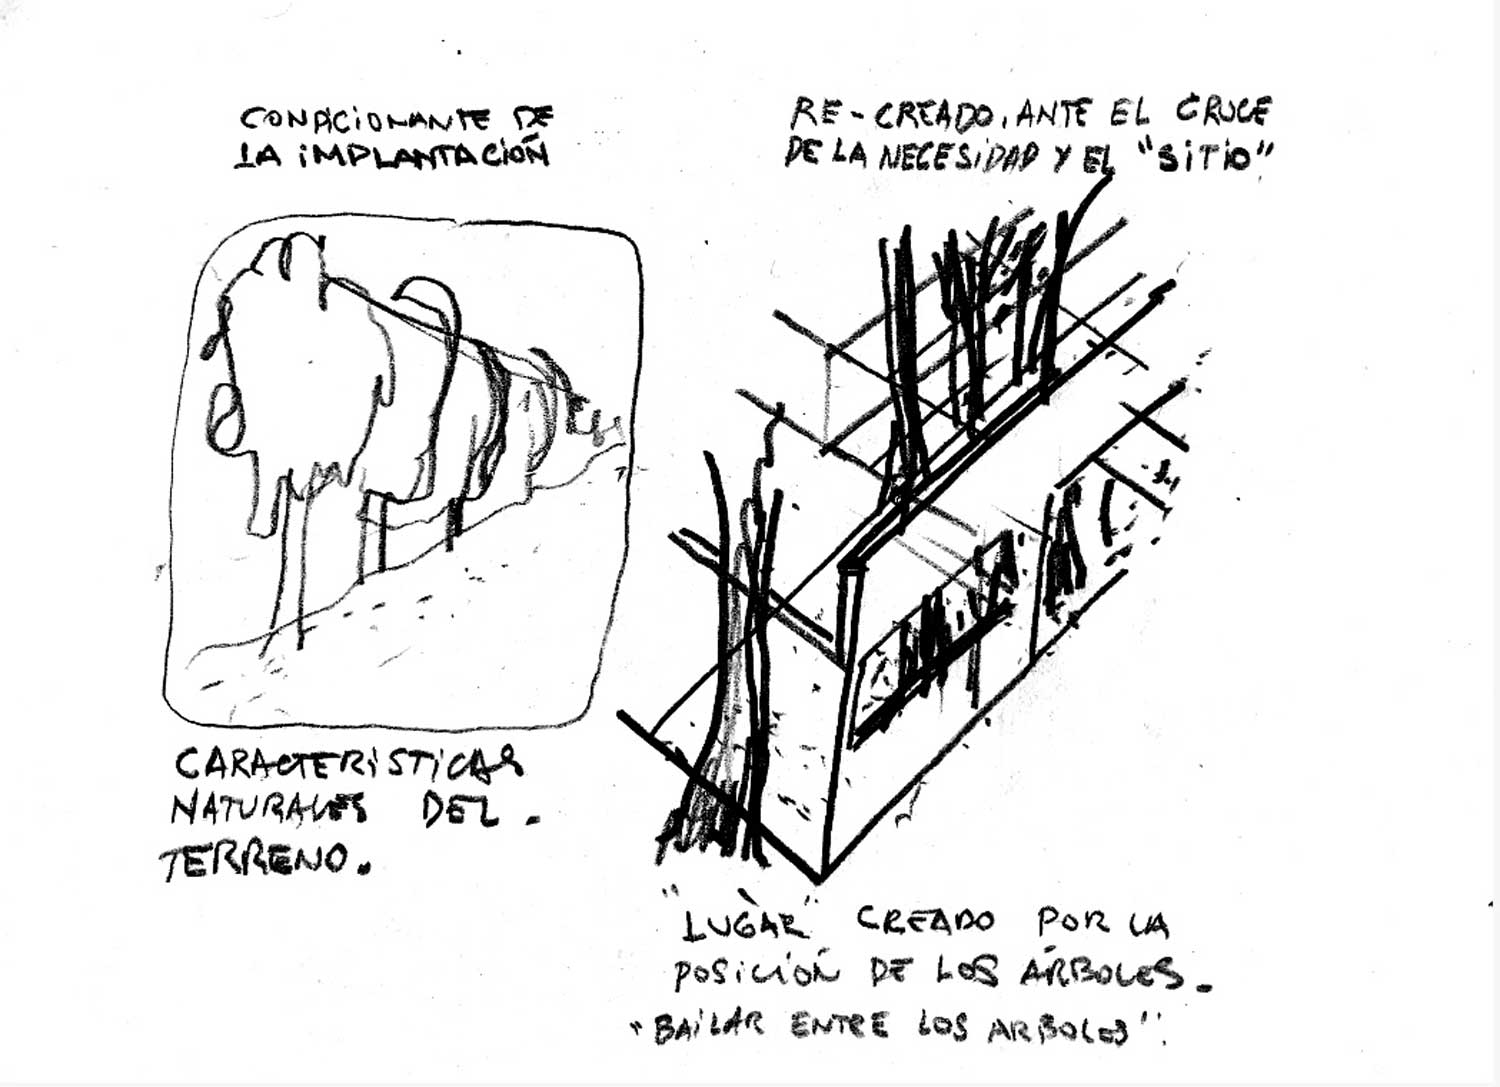 CONDICIONANTE DE
LA iMPLANTACiÓN
RE-CREADO, ANTE EL CRUCE
DE LA NECESiDAD Y EL "SiTiO"
CARACTERiSTiCAS
NATURALES DEL.
TERRENO.
"LUGAR" CREADO POR LA
POSiCiÓN DE LOS ÁRBOLES.
"BAiLAR ENTRE LOS ARBOLES".